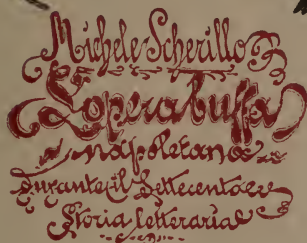 Michele Scherillo
L'opera buffa
napoletana
durante il Settecento
Storia letteraria